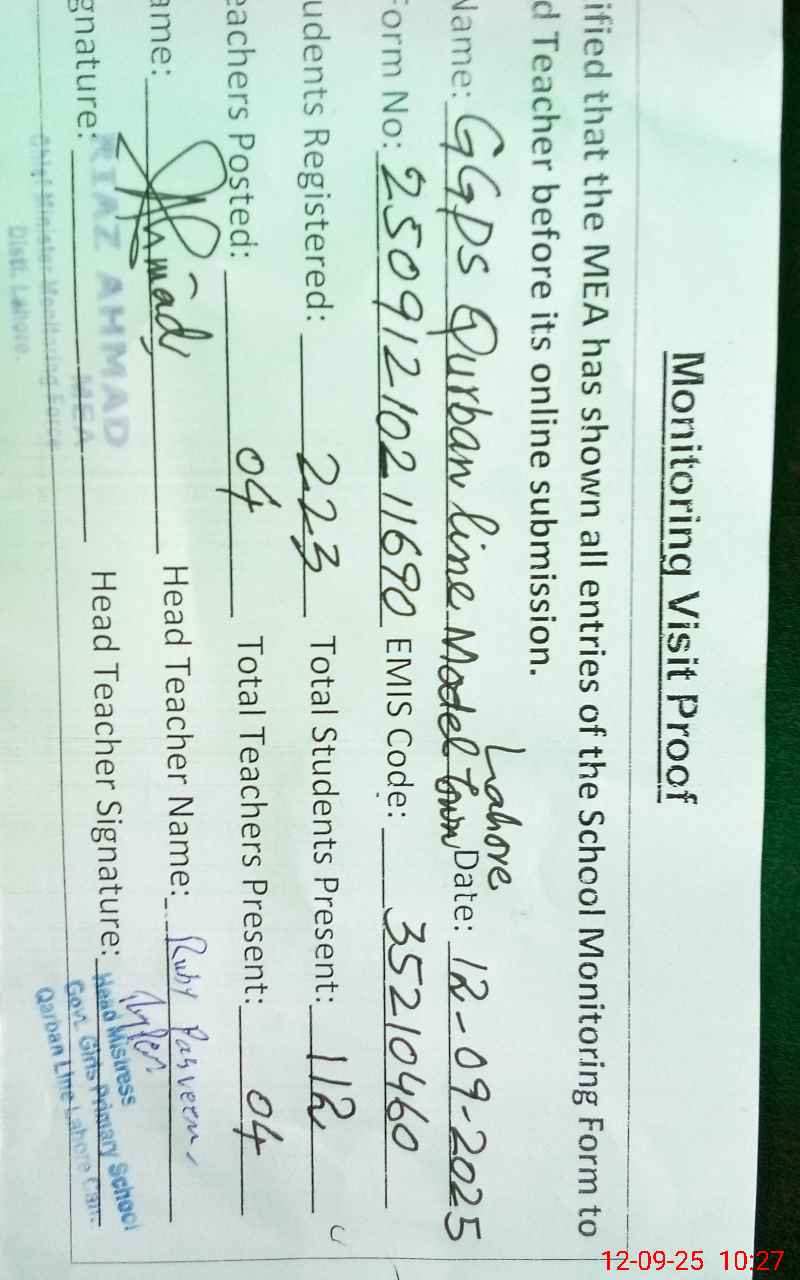 Monitoring Visit Proof
ified that the MEA has shown all entries of the School Monitoring Form to
d Teacher before its online submission.
Name: GGPS Qurban line Model Town Lahore Date: 12-09-2025
orm No: 25091210211690 EMIS Code: 35210460
udents Registered: 223 Total Students Present: 112
eachers Posted: 04 Total Teachers Present: 04
ame: Ahmad Head Teacher Name: Ruby Parveen
gnature: Head Teacher Signature:
RIAZ AHMAD
MEA
Chief Minister Monitoring Force
Distt. Lahore.
Head Mistress
Govt. Girls Primary School
Qarban Line Lahore Cantt.
12-09-25 10:27